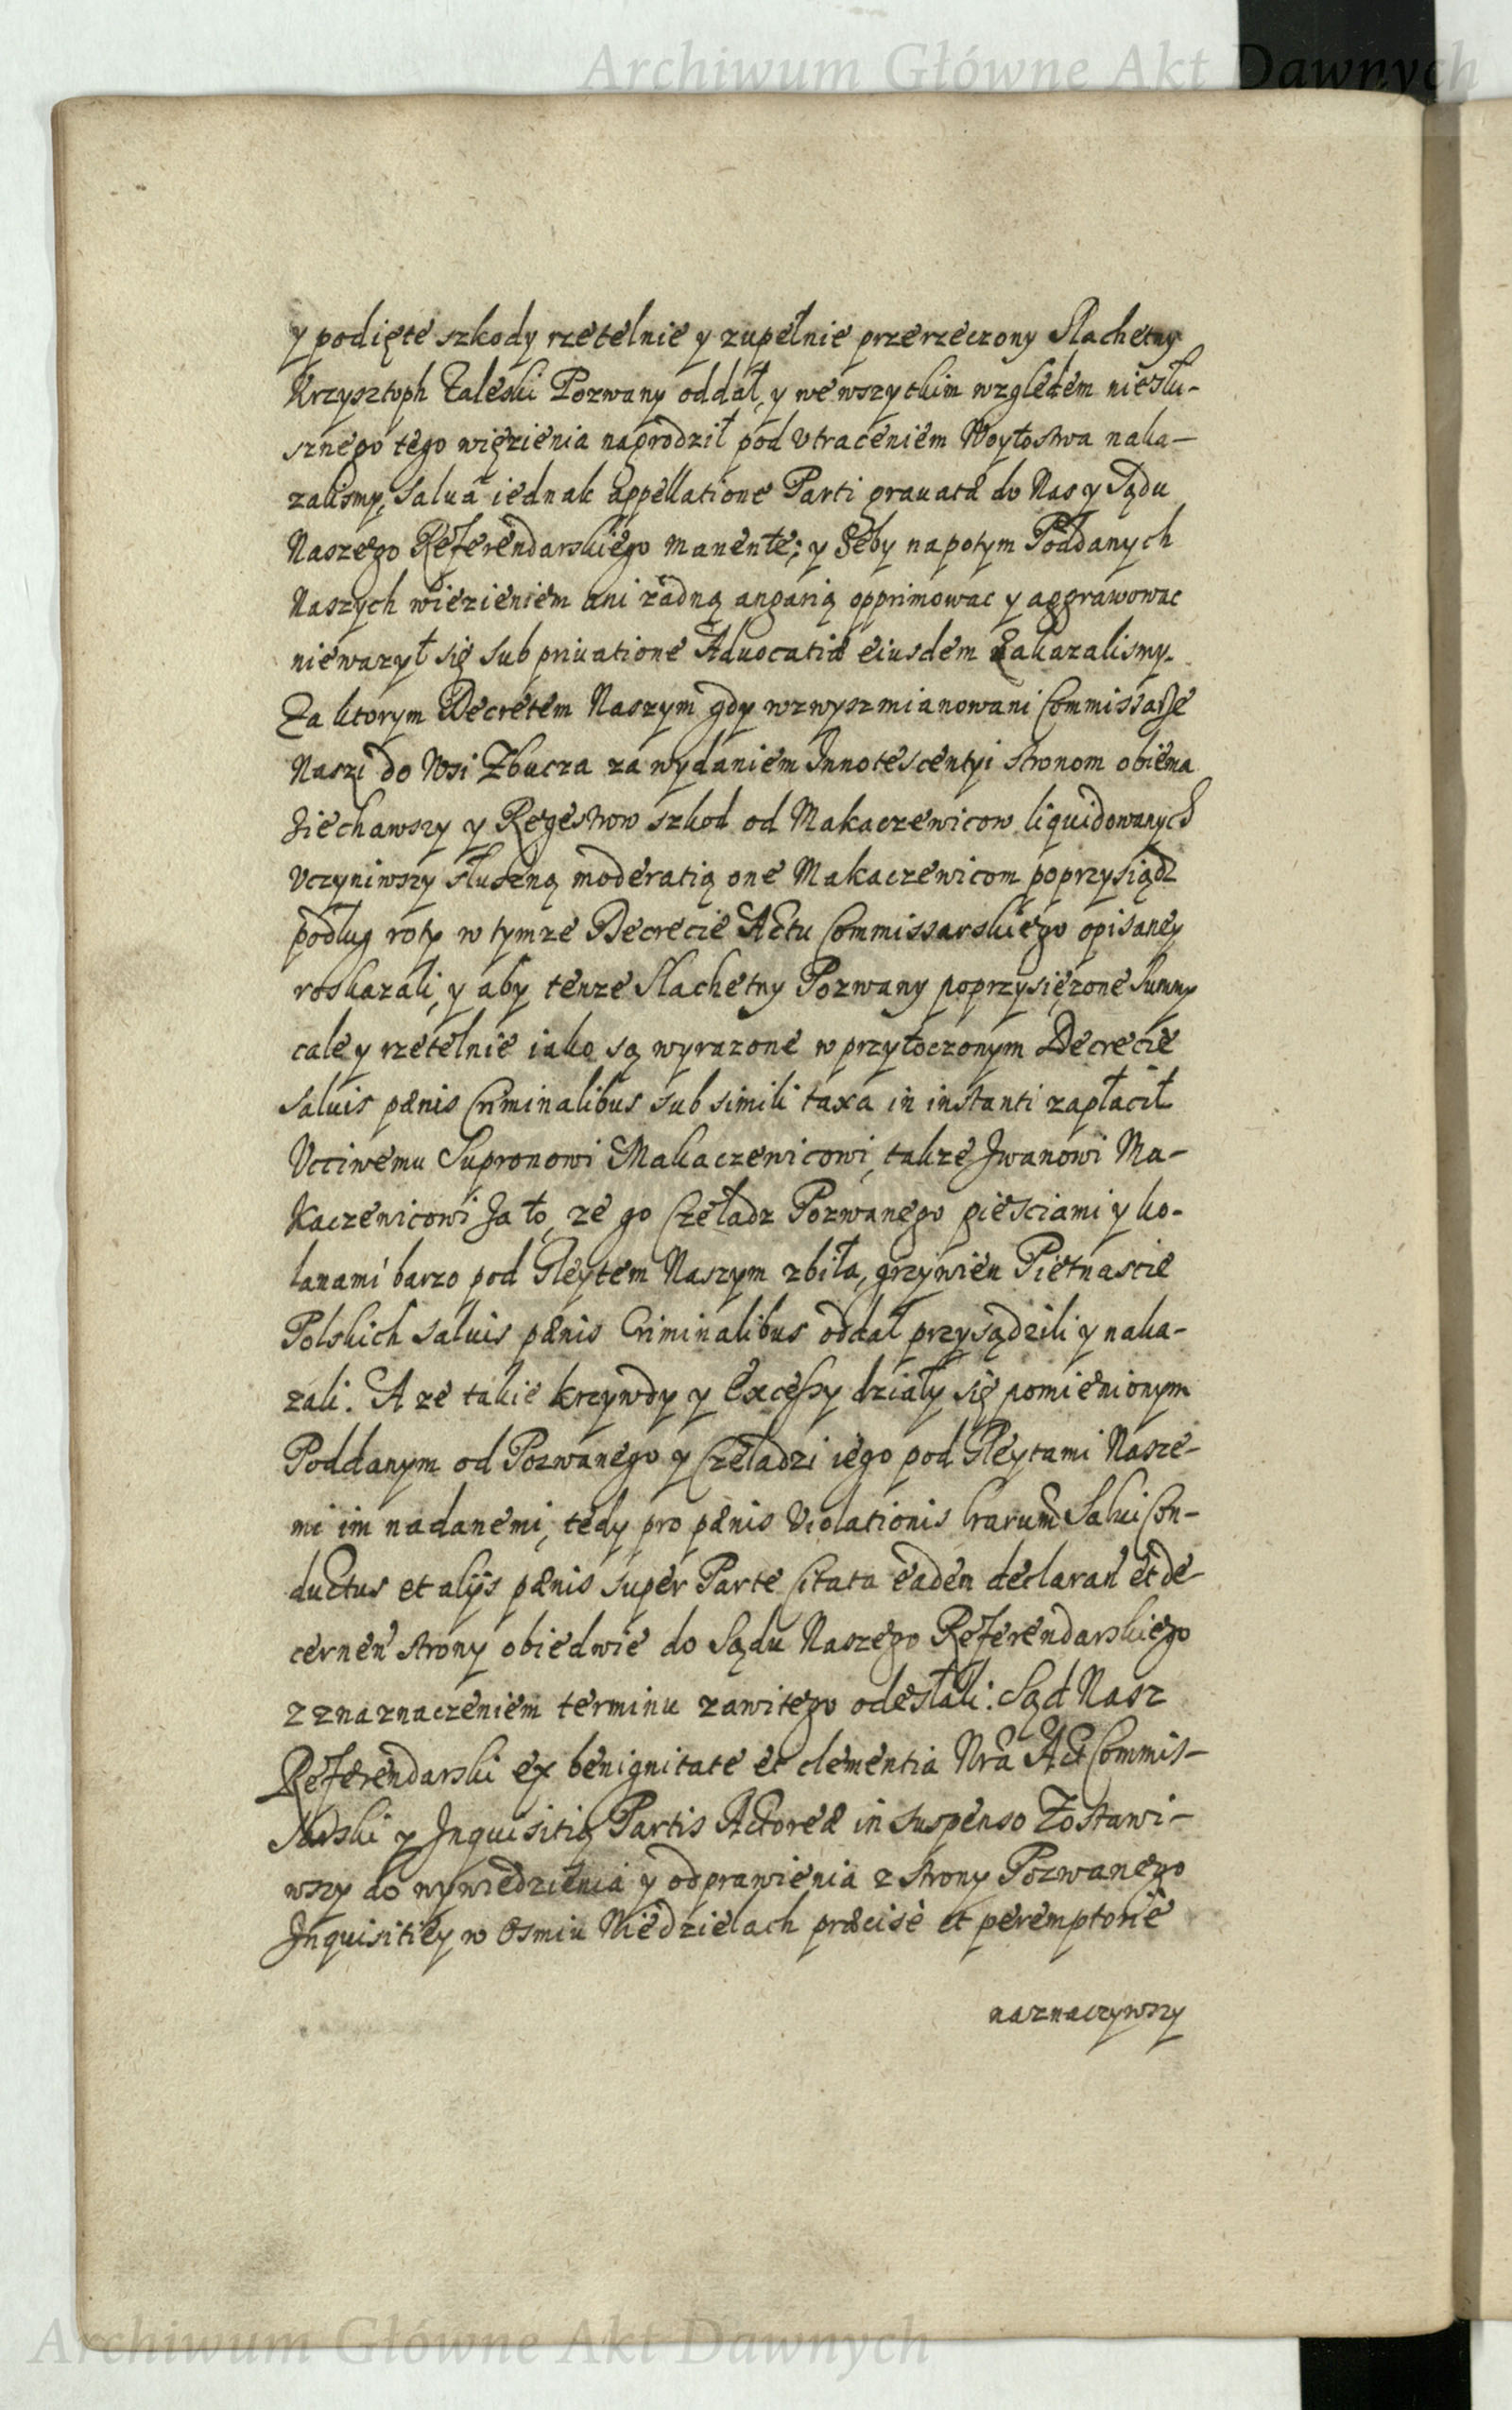 Archiwum Główne Akt Dawnych
y podięte szkody rzetelnie y zupełnie przerzeczony Slachetny
Krzysztoph Zaleski Pozwany oddał, y we wszytkim względem niesłu-
sznego tego więzienia nagrodził pod vtraceniem Woytostwa naka-
zalismy, Salua iednak appellatione Parti grauatæ do Nas y Sądu
Naszego Referendarskiego manente; y żeby napotym Poddanych
Naszych wiezieniem ani żadną angarią opprimowac y aggrawowac
nieważył się sub priuatione Aduocatiæ eiusdem zakazalismy.
Za ktorym Decretem Naszym gdy wzwyszmianowani Commissarze
Naszi do Wsi Zbucza za wydaniem Innotescentyi stronom obiema
Ziechawszy y Regestrow szkod od Makaczewicow liquidowanych
Vczyniwszy słuszną moderatią one Makaczewicom poprzysiądz
podług roty w tymze Decrecie Actu Commissarskiego opisaney
roskazali, y aby tenze Slachetny Pozwany poprzysięzone Summy
cale y rzetelnie iako są wyrazone w przytoczonym Decrecie
saluis pænis Criminalibus sub simili taxa in instanti zapłacił
Vcciwemu Supronowi Makaczewicowi, takze Iwanowi Ma-
kaczewicowi Za to, ze go Czeladz Pozwanego pięsciami y ko-
lanami barzo pod Gleytem Naszym zbiła, grzywien Pietnascie
Polskich saluis pænis Criminalibus oddał przysądzili y naka-
zali. A ze takie krzywdy y Excessy działy się pomienionym
Poddanym od Pozwanego y Czeladzi iego pod Gleytami Nasze-
mi im nadanemi, tedy pro pænis Violationis lrarum Salui Con-
ductus et alijs pænis super Parte Citata eaden declaran et de
cernen strony obiedwie do Sądu Naszego Referendarskiego
z znaznaczeniem terminu zawitego odesłali. Sąd Nasz
Referendarski ex benignitate et clementia Nra Act Commis-
sarski y Inquisitią Partis Actoreæ in suspenso Zostawi-
wszy do wywiedzienia y odprawienia z strony Pozwanego
Inquisitiey w Osmiu Niedzielach præcise et peremptorie
naznaczywszy
Archiwum Główne Akt Dawnych